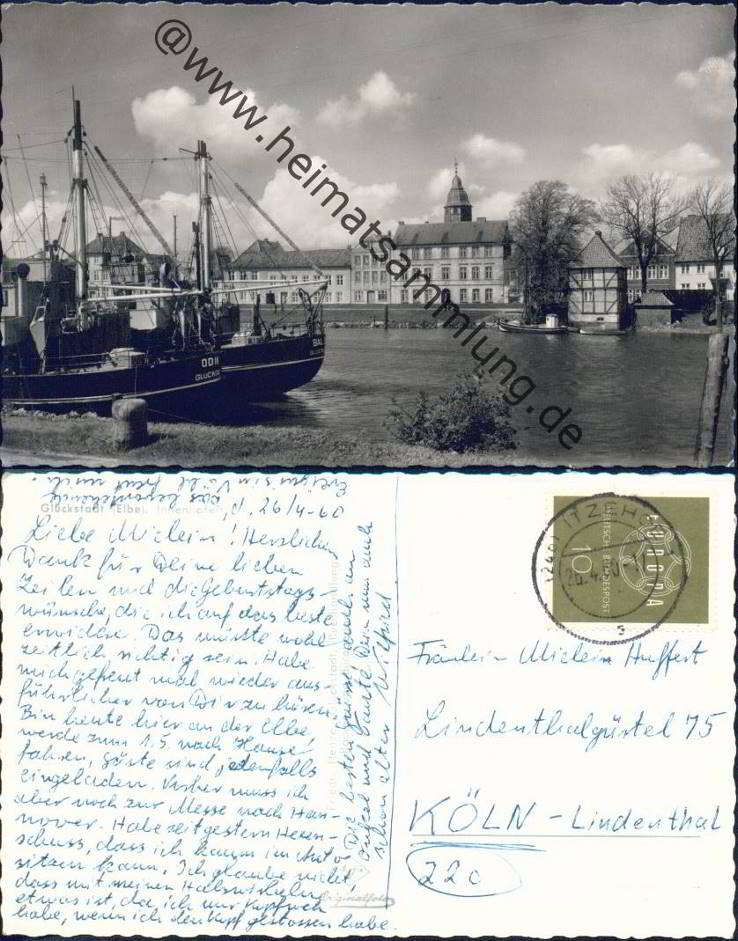 @www.heimatsammlung.de
ODIN
GLÜCKS
BAL
Glückstadt (Elbe). Innenhafen
d. 26/4-60
Liebe Mielein! Herzlichen
Dank für Deine lieben
Zeilen und die Geburtstags-
wünsche, die ich auf das beste
erwidere. Das müsste wohl
zeitlich richtig sein. Habe
mich gefreut mal wieder aus-
führlicher von Dir zu hören.
Bin heute hier an der Elbe,
werde zum 1.5. nach Hause
fahren, Gäste sind jedenfalls
eingeladen. Vorher muss ich
aber noch zur Messe nach Han-
nover. Habe seit gestern Hexen-
schuss, dass ich kaum im Auto
sitzen kann. Ich glaube nicht,
dass mit meinen Halswirbeln
etwas ist, da ich nur Kopfweh
habe, wenn ich den Kopf gestossen habe.
Die besten Grüsse auch an
Onkel und Tante! Dein nun auch
schon alter
das bevorstehende
freut mich.
Originalfoto
ITZEHOE
EUROPA
DEUTSCHE BUNDESPOST
10
Fräulein Mielein Huffert
Lindenthalgürtel 75
KÖLN - Lindenthal
22c